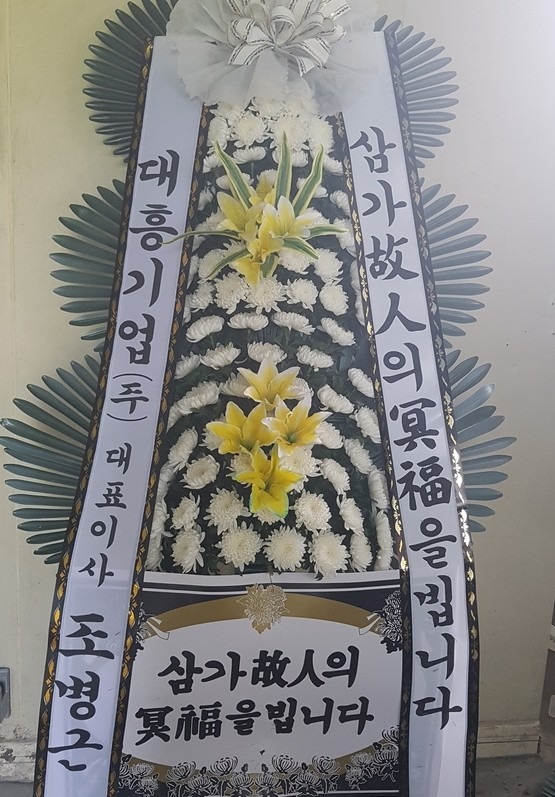 대흥기업(주) 대표이사 조병근
삼가故人의冥福을빕니다
삼가故人의
冥福을빕니다